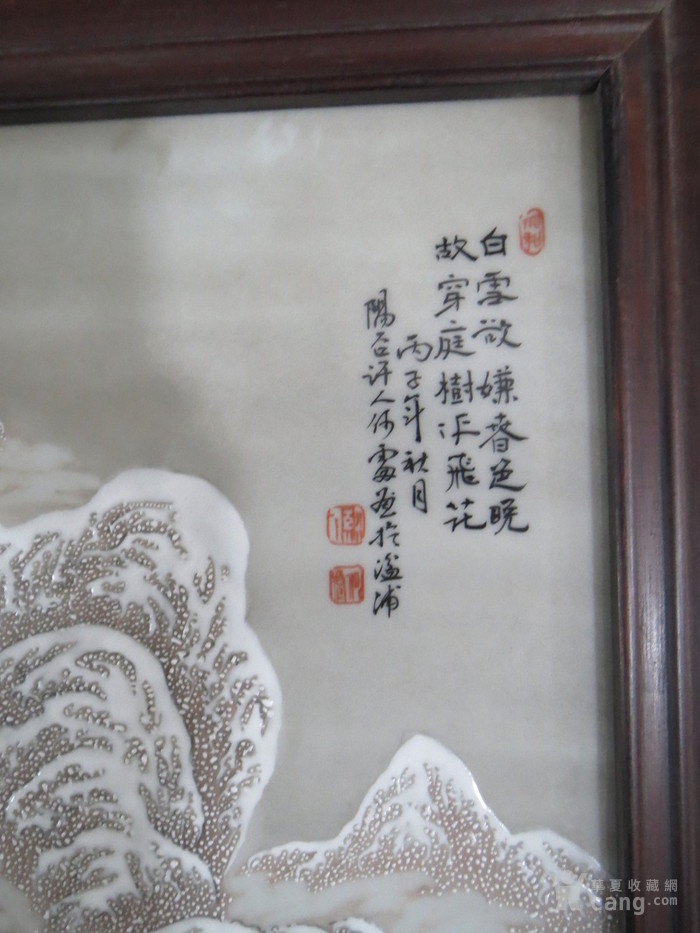 白雪欲嫌春色晚
故穿庭樹作飛花
丙子年秋月
陽许人何画於湓浦
華夏收藏網
cang.com